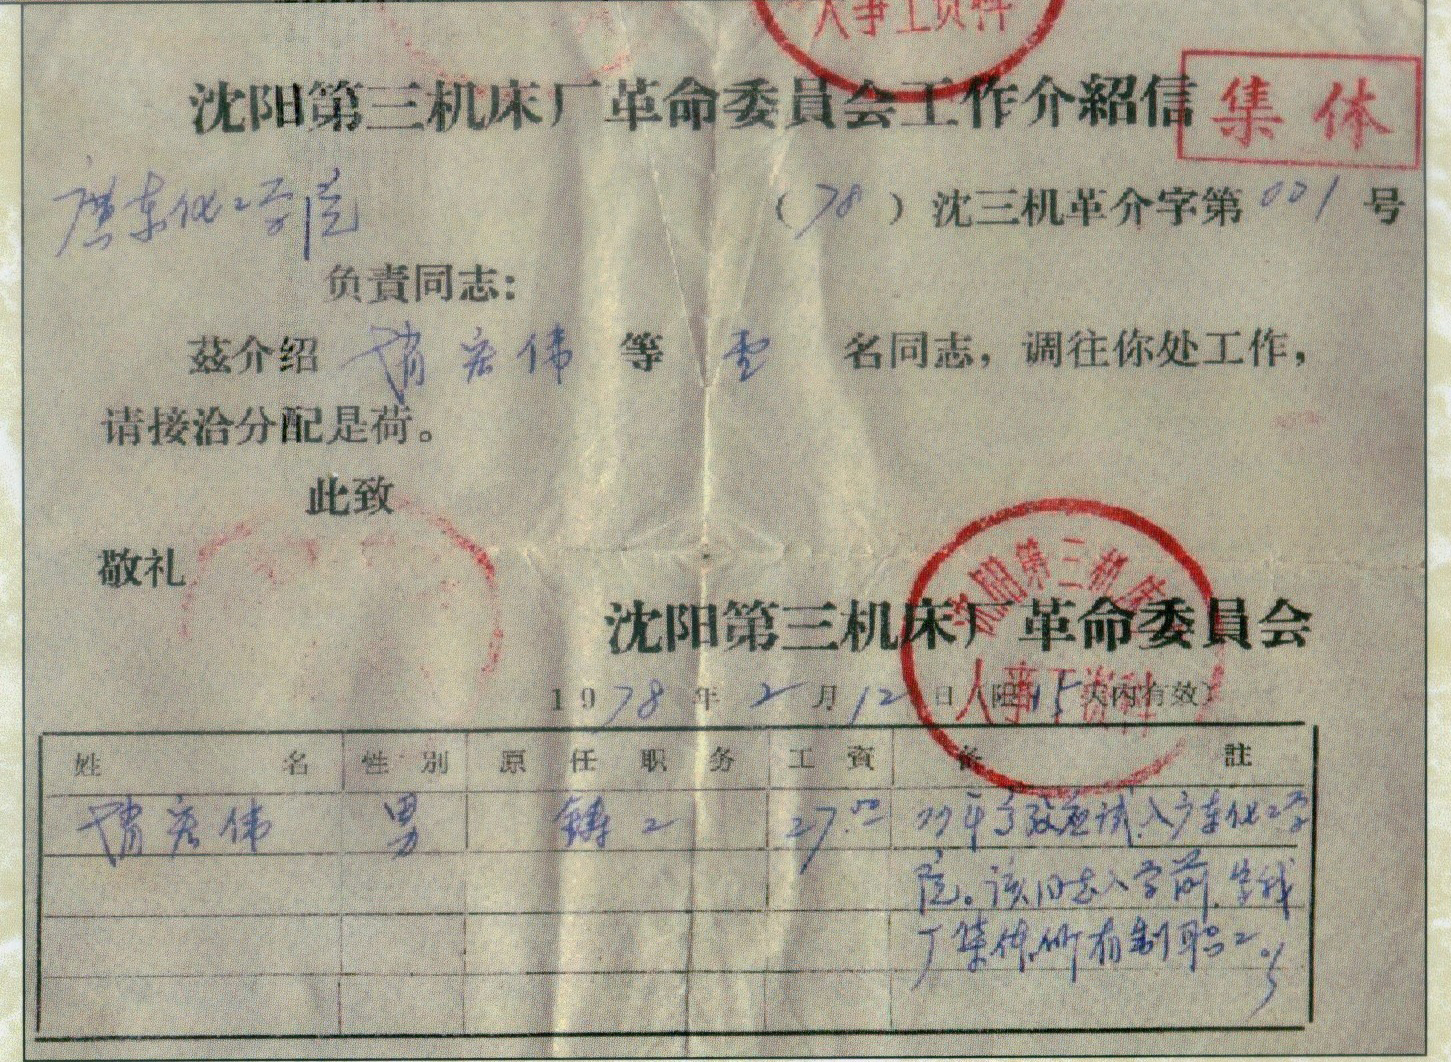 人事工资科
沈阳第三机床厂革命委員会工作介紹信
集体
广东化工学院
(78)沈三机革介字第001号
负責同志:
茲介绍 宏伟 等 壹 名同志，调往你处工作，
请接洽分配是荷。
此致
敬礼
沈阳第三机床厂
人事工资科
沈阳第三机床厂革命委員会
1978年2月12日(限15天内有效)
姓名 性别 原任职务 工資 备註
宏伟 男 铸工 27.00 77年高考应试入广东化工学
院。该同志入学前,是我
厂集体所有制职工。